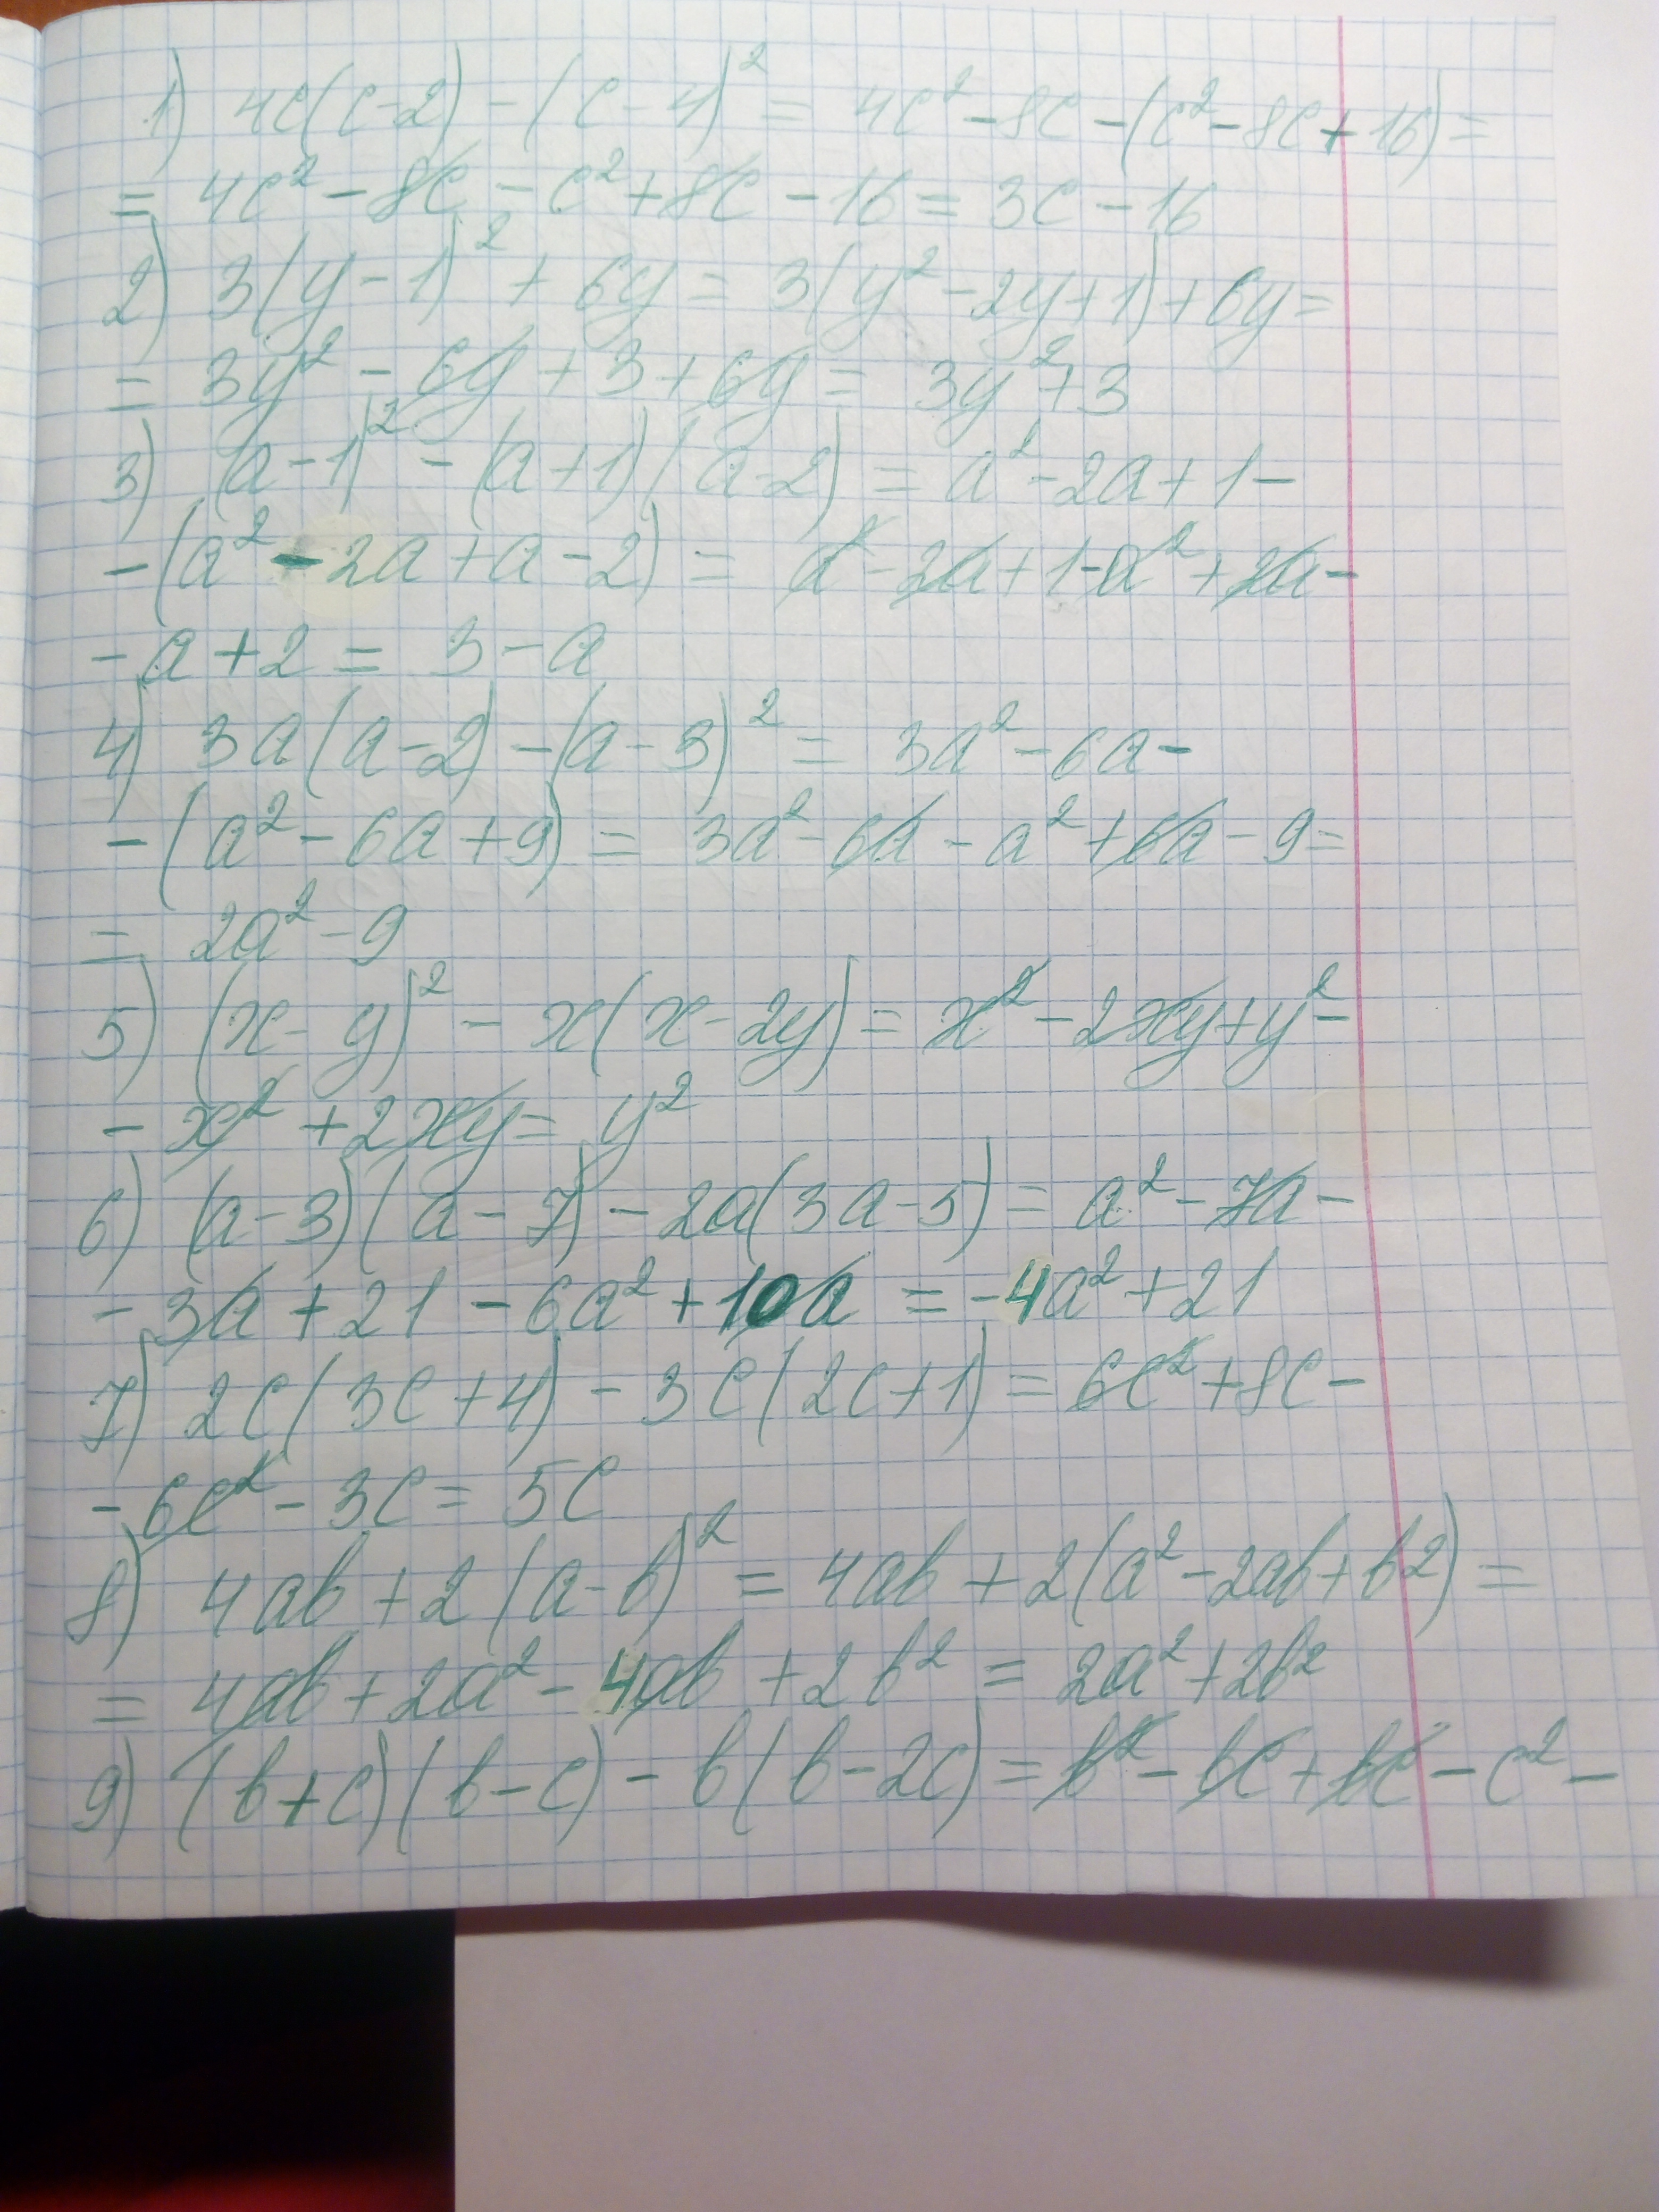 1) 4c(c-2) - (c-4)² = 4c² - 8c - (c² - 8c + 16) =
= 4c² - 8c - c² + 8c - 16 = 3c - 16
2) 3(y-1)² + 6y = 3(y² - 2y + 1) + 6y =
= 3y² - 6y + 3 + 6y = 3y² + 3
3) (a-1)² - (a+1)(a-2) = a² - 2a + 1 -
- (a² - 2a + a - 2) = a² - 2a + 1 - a² + 2a -
- a + 2 = 3 - a
4) 3a(a-2) - (a-3)² = 3a² - 6a -
- (a² - 6a + 9) = 3a² - 6a - a² + 6a - 9 =
= 2a² - 9
5) (x-y)² - x(x-2y) = x² - 2xy + y² -
- x² + 2xy = y²
6) (a-3)(a-7) - 2a(3a-5) = a² - 7a -
- 3a + 21 - 6a² + 10a = -4a² + 21
7) 2c(3c+4) - 3c(2c+1) = 6c² + 8c -
- 6c² - 3c = 5c
8) 4ab + 2(a-b)² = 4ab + 2(a² - 2ab + b²) =
= 4ab + 2a² - 4ab + 2b² = 2a² + 2b²
9) (b+c)(b-c) - b(b-2c) = b² - bc + bc - c² -